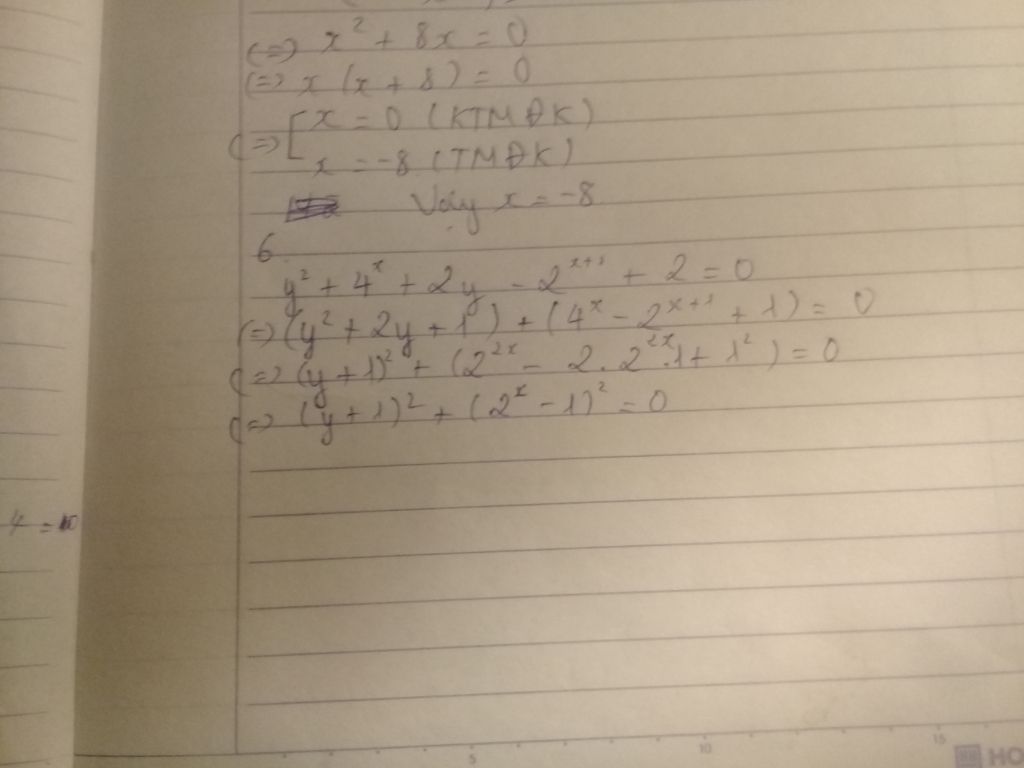 (=) x² + 8x = 0
(=) x (x + 8) = 0
(=) [ x = 0 (KTMĐK)
x = -8 (TMĐK)
Vậy x = -8
6.
y² + 4ˣ + 2y - 2ˣ⁺¹ + 2 = 0
(=) (y² + 2y + 1) + (4ˣ - 2ˣ⁺¹ + 1) = 0
(=) (y + 1)² + (2²ˣ - 2. 2²ˣ.1 + 1²) = 0
(=) (y + 1)² + (2ˣ - 1)² = 0
5
10
15
HO